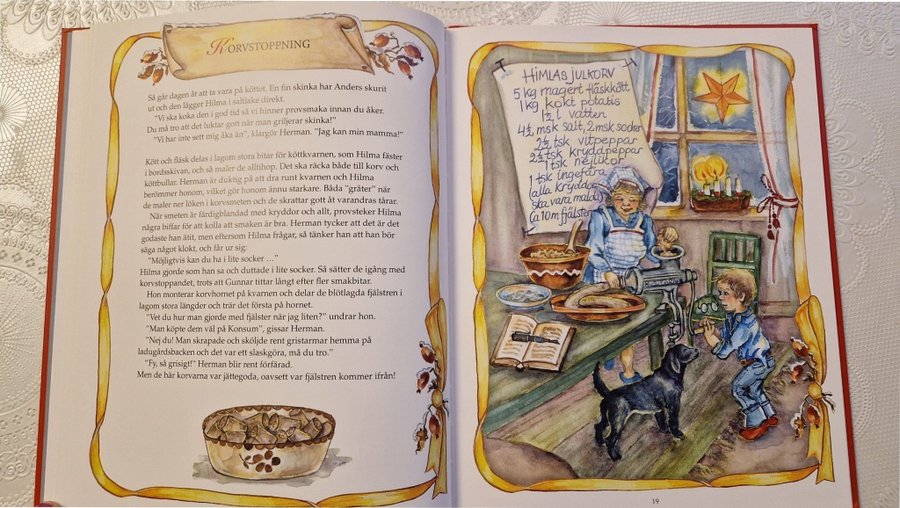 KORVSTOPPNING
Så går dagen åt att ta vara på köttet. En fin skinka har Anders skurit
ut och den lägger Hilma i saltlake direkt.
"Vi ska koka den i god tid så vi hinner provsmaka innan du åker.
Du må tro att det luktar gott när man griljerar skinka!"
"Vi har inte sett mig åka än", klargör Herman. "Jag kan min mamma!"
Kött och fläsk delas i lagom stora bitar för köttkvarnen, som Hilma fäster
i bordsskivan, och så maler de alltihop. Det ska räcka både till korv och
köttbullar. Herman är duktig på att dra runt kvarnen och Hilma
berömmer honom, vilket gör honom ännu starkare. Båda "gråter" när
de maler ner löken i korvsmeten och de skrattar gott åt varandras tårar.
När smeten är färdigblandad med kryddor och allt, provsteker Hilma
några biffar för att kolla att smaken är bra. Herman tycker att det är det
godaste han ätit, men eftersom Hilma frågar, så tänker han att han bör
säga något klokt, och får ur sig:
"Möjligtvis kan du ha i lite socker ..."
Hilma gjorde som han sa och duttade i lite socker. Så sätter de igång med
korvstoppandet, trots att Gunnar tittar långt efter fler smakbitar.
Hon monterar korvhornet på kvarnen och delar de blötlagda fjälstren i
lagom stora längder och trär det första på hornet.
"Vet du hur man gjorde med fjälster när jag var liten?" undrar hon.
"Man köpte dem väl på Konsum", gissar Herman.
"Nej du! Man skrapade och sköljde rent gristarmar hemma på
ladugårdsbacken och det var ett slaskgöra, må du tro."
"Fy, så grisigt!" Herman blir rent förfärad.
Men de här korvarna var jättegoda, oavsett var fjälstren kommer ifrån!
HIMLAS JULKORV
5 kg magert fläskkött
1 kg kokt potatis
1½ l vatten
4½ msk salt, 2 msk socker
2½ tsk vitpeppar
2½ tsk kryddpeppar
1 tsk nejlikor
1 tsk ingefära
(alla kryddor
ska vara malda)
Ca 10 m fjälster
19